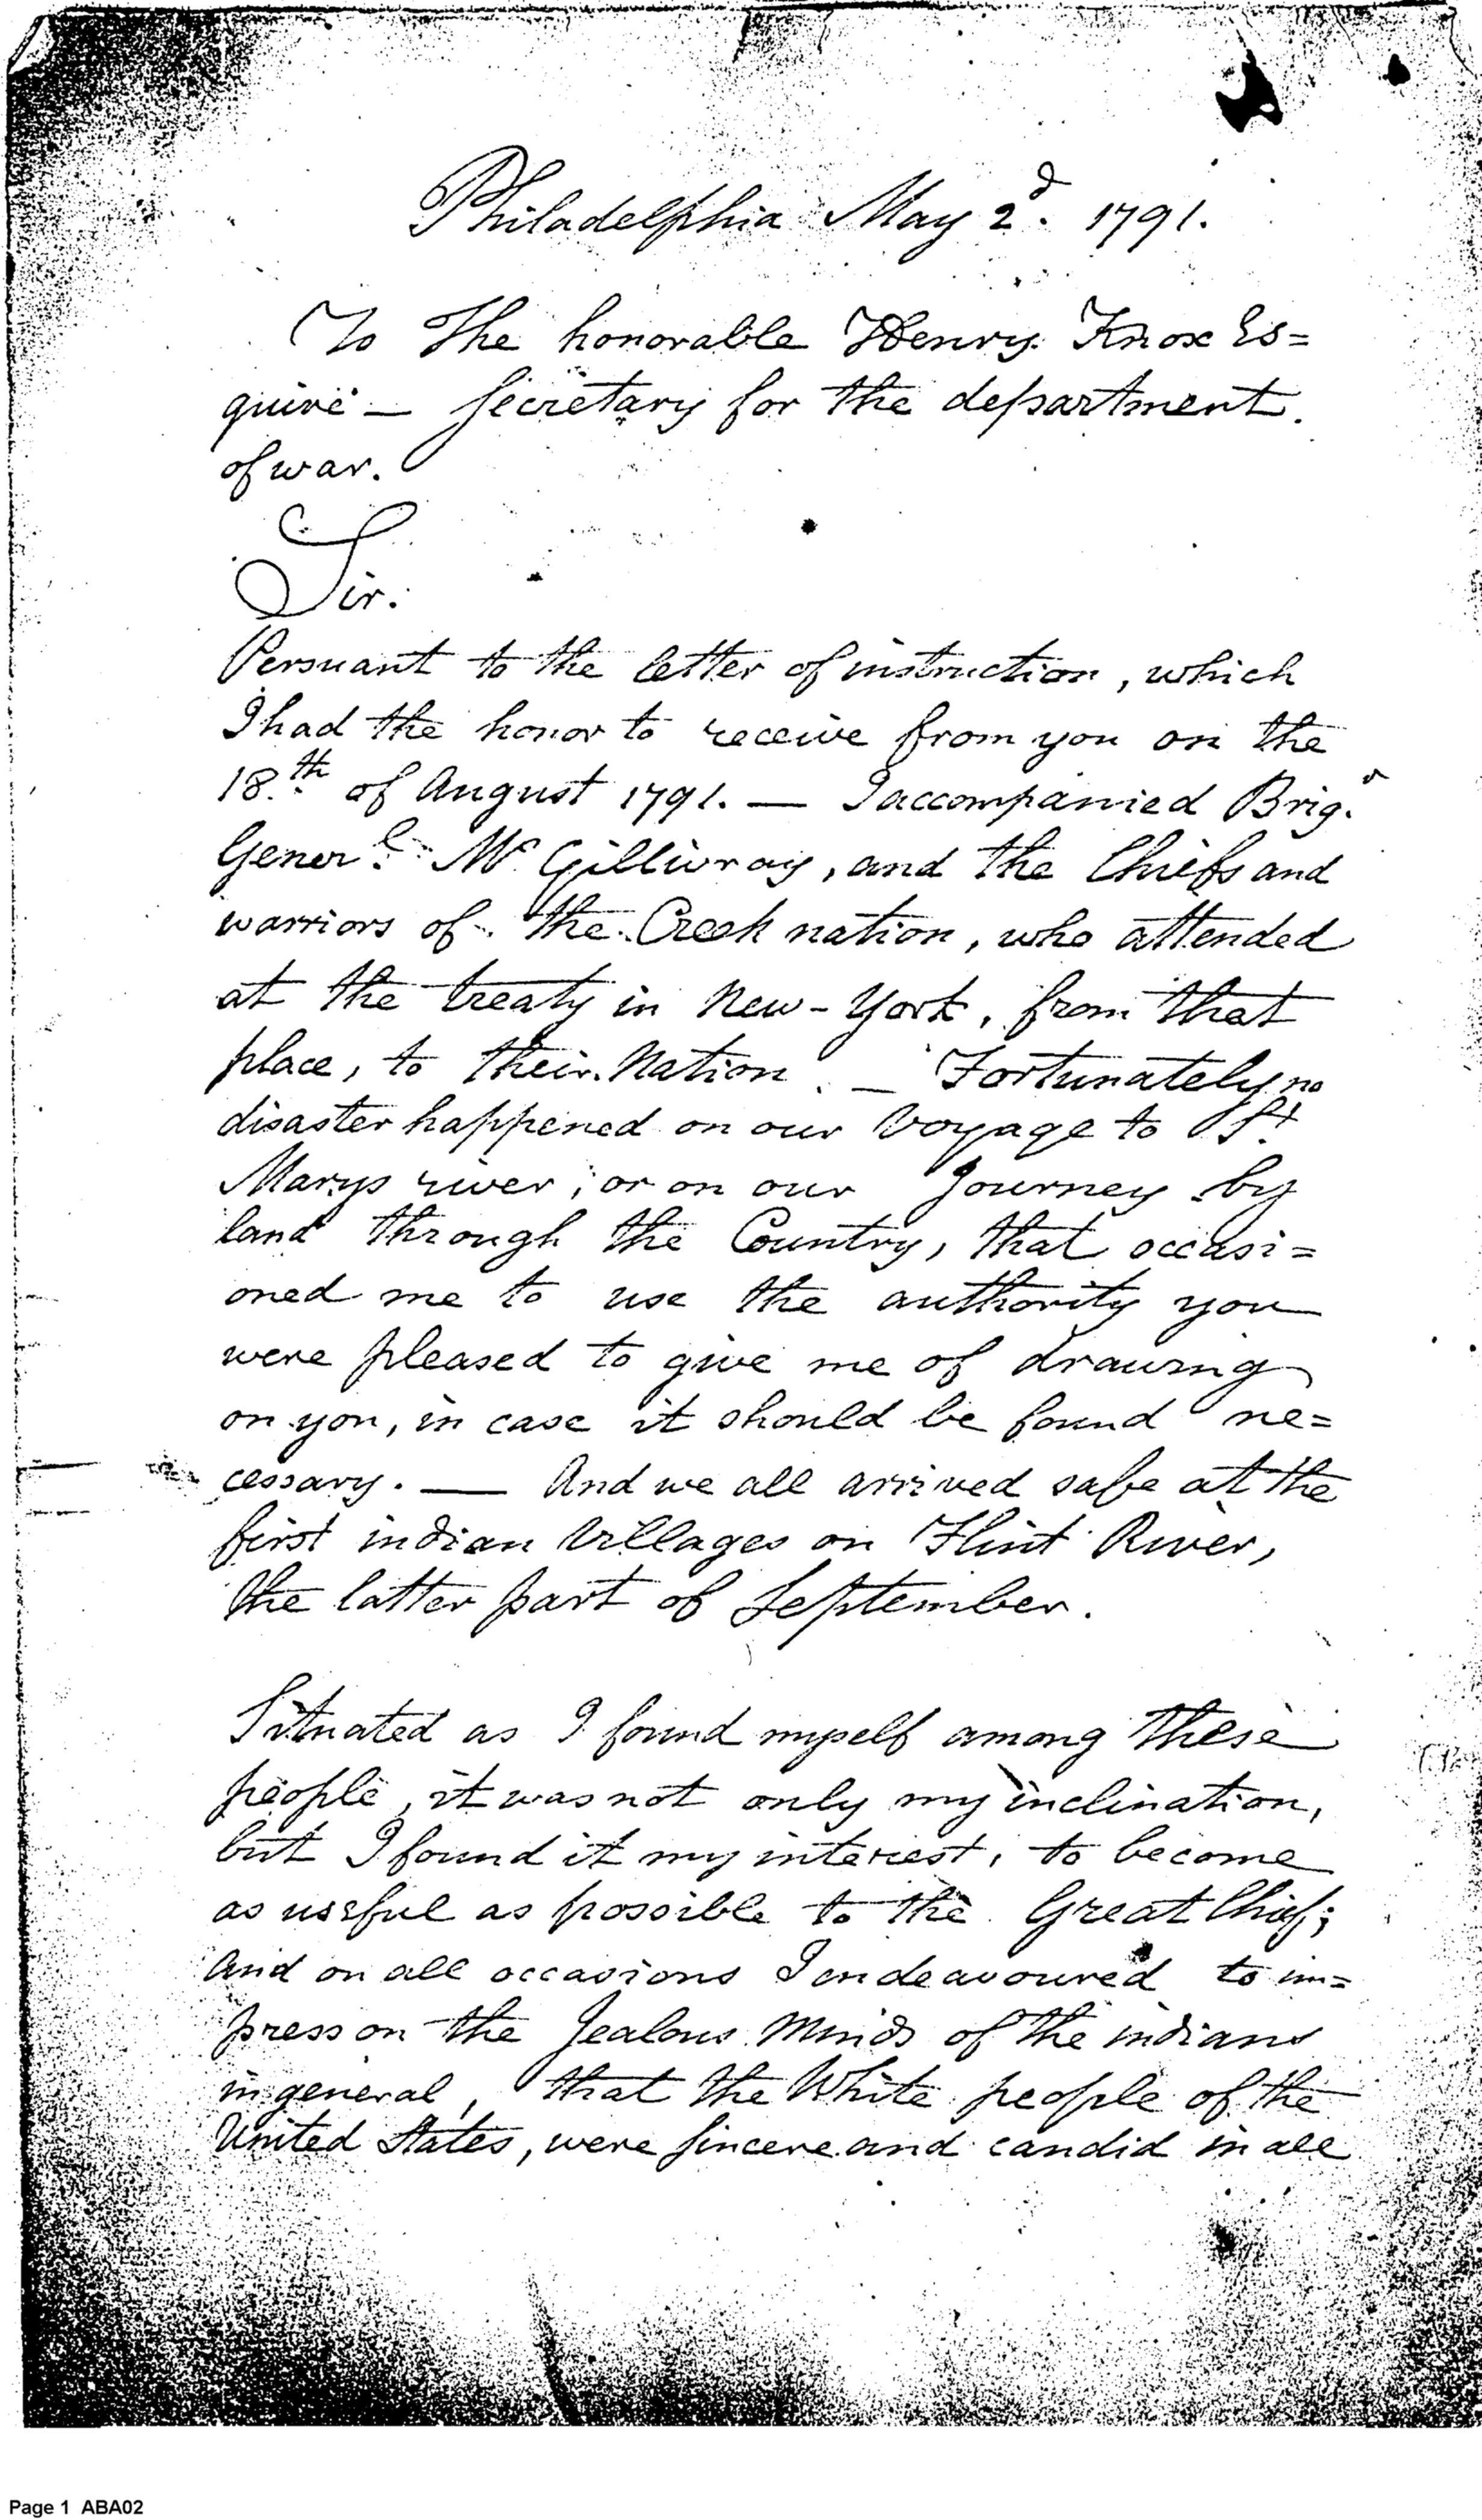 Philadelphia May 2d. 1791.
To The honorable Henry Knox Es=
quire — Secretary for the department
of war.
Sir.
Persuant to the letter of instruction, which
I had the honor to receive from you on the
18.th of August 1791. — I accompanied Brigr.
Generl. Mc Gilliwray, and the Chiefs and
warriors of the Creek nation, who attended
at the treaty in New-York, from that
place, to their Nation. — Fortunately no
disaster happened on our Voyage to St.
Marys river; or on our Journey by
land through the Country, that occasi=
oned me to use the authority you
were pleased to give me of drawing
on you, in case it should be found ne=
cessary. — And we all arrived safe at the
first indian Villages on Flint River,
the latter part of September.
Situated as I found myself among these
people, it was not only my inclination,
but I found it my interest, to become
as useful as possible to the Great Chief;
And on all occasions I endeavoured to im=
press on the Jealous Minds of the indians
in general, that the White people of the
United States, were sincere and candid in all
Page 1 ABA02